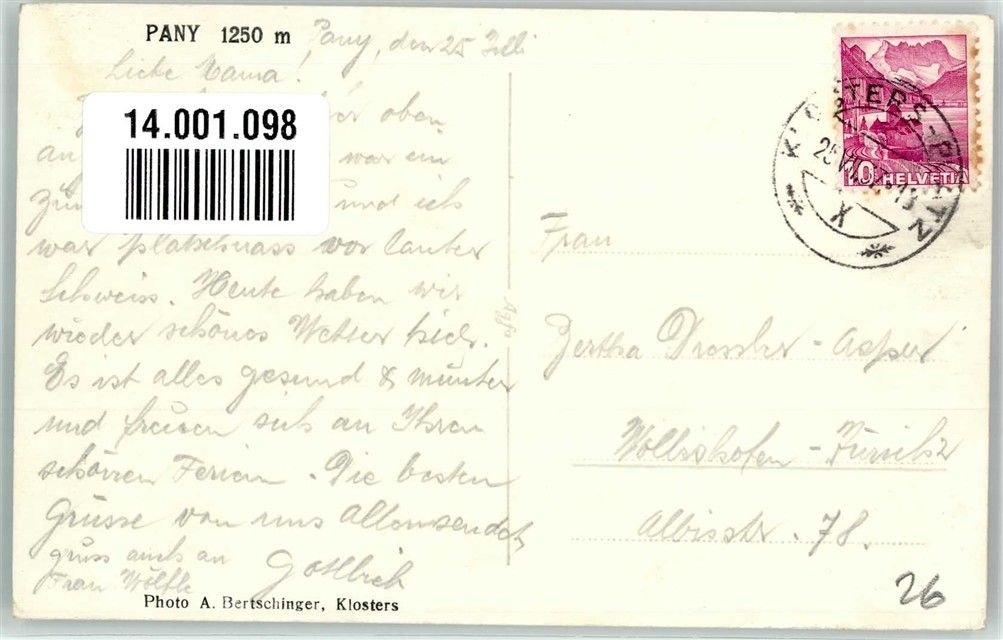 PANY 1250 m
Pany, den 25 Juli
Liebe Mama!
oben
an war ein
und ich
war platschnass vor lauter
Schweiss. Heute haben wir
wieder schönes Wetter hier.
Es ist alles gesund & munter
und freuen sich an Ihren
schönen Ferien. Die besten
Grüsse von uns Allen sendet,
Gottlieb
gruss auch an
Frau Wölfle
Photo A. Bertschinger, Klosters
14.001.098
Agfa
HELVETIA
10
KLOSTERS-PLATZ
X
Frau
Bertha Dressler-Asper
Wollishofen-Zürich 2
Albisstr. 78.
26